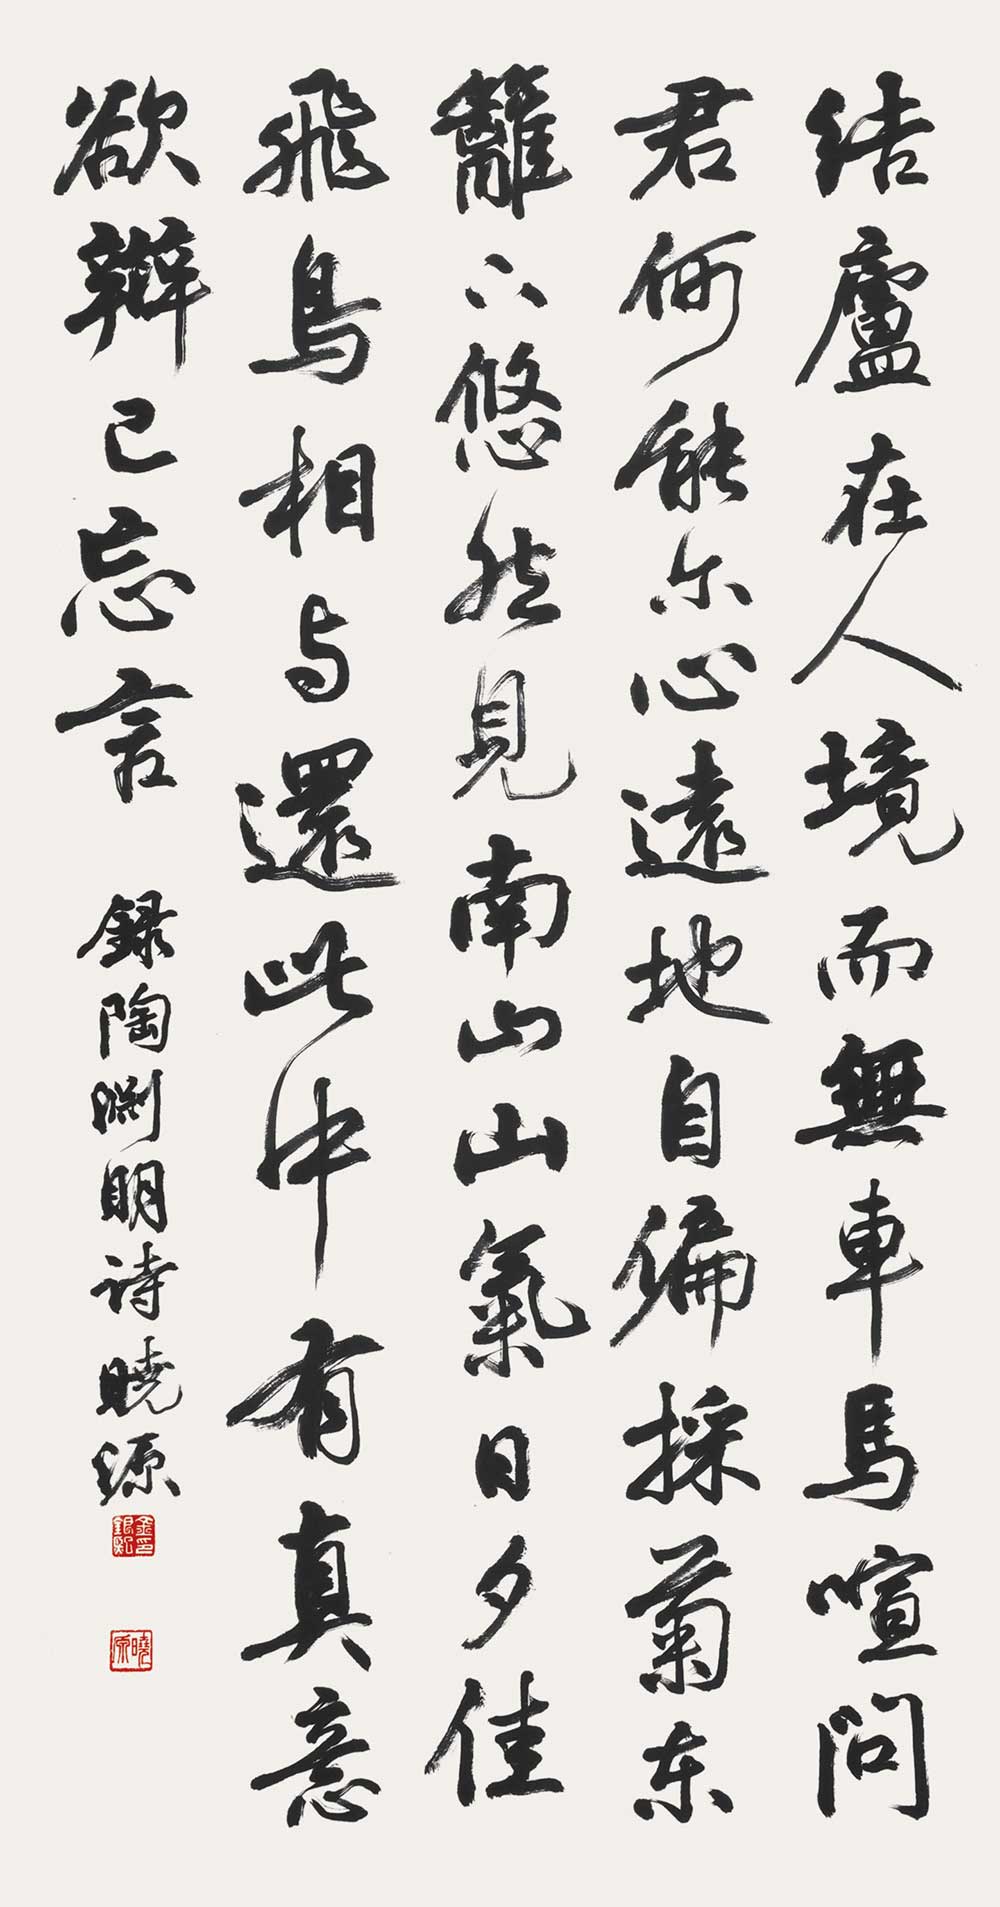 结廬在人境而無車馬喧问
君何能尔心遠地自偏採菊东
籬下悠然見南山山氣日夕佳
飛鳥相与還此中有真意
欲辯已忘言
録陶渊明诗曉源
曉源